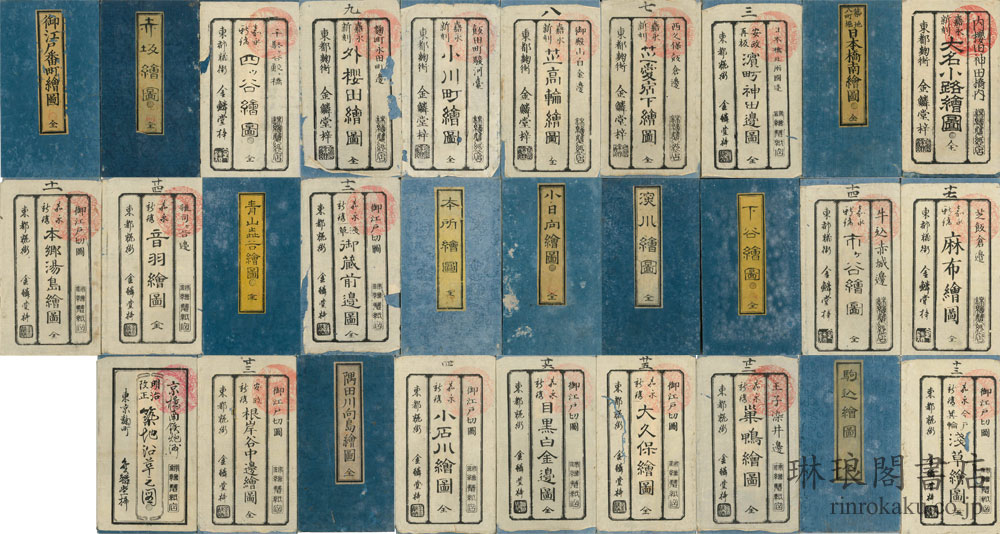 御江戸番町繪圖
全
赤坂繪圖
全
四ッ谷繪圖
全
東都麹街
金鱗堂梓
九
麹町永田町邊
嘉永新刻
外櫻田繪圖
全
東都麹街
金鱗堂梓
飯田町駿河臺
嘉永新刻
小川町繪圖
全
東都麹街
金鱗堂梓
八
御殿山白金邊
嘉永新刻
芝高輪繪圖
全
東都麹街
金鱗堂梓
七
西久保飯倉邊
嘉永新刻
芝愛宕下繪圖
全
東都麹街
金鱗堂梓
三
安政再板
濱町神田邊圖
全
東都麹街
金鱗堂梓
築地八町堀
日本橋南繪圖
全
内櫻田神田橋内
嘉永新刻
大名小路繪圖
全
東都麹街
金鱗堂梓
十一
御江戸切圖
嘉永新鐫
本郷湯島繪圖
全
東都麹街
金鱗堂梓
廿四
雜司谷邊
嘉永新鐫
音羽繪圖
全
東都麹街
金鱗堂梓
青山澁谷繪圖
全
十二
御江戸切圖
嘉永新鐫
淺草
御藏前邊圖
全
東都麹街
金鱗堂梓
本所繪圖
全
小日向繪圖
全
深川繪圖
全
下谷繪圖
全
十四
牛込赤城邊
嘉永新鐫
市ヶ谷繪圖
全
東都麹街
金鱗堂梓
芝飯倉邊
嘉永新鐫
麻布繪圖
全
東都麹街
金鱗堂梓
京橋南築地
明治改正
築地沿革之圖
東京麹町
金鱗堂梓
御江戸切圖
安政新鐫
根岸谷中邊繪圖
全
東都麹街
金鱗堂梓
隅田川向島繪圖
全
四
御江戸切圖
嘉永新鐫
小石川繪圖
全
東都麹街
金鱗堂梓
御江戸切圖
嘉永新鐫
目黒白金邊圖
全
東都麹街
金鱗堂梓
廿五
御江戸切圖
嘉永新鐫
大久保繪圖
全
東都麹街
金鱗堂梓
王子染井邊
嘉永新鐫
巣鴨繪圖
全
東都麹街
金鱗堂梓
駒込繪圖
全
御江戸切圖
嘉永新鐫
今戸箕輪
淺草繪圖
全
東都麹街
金鱗堂梓
琳琅閣書店
rinrokaku.co.jp